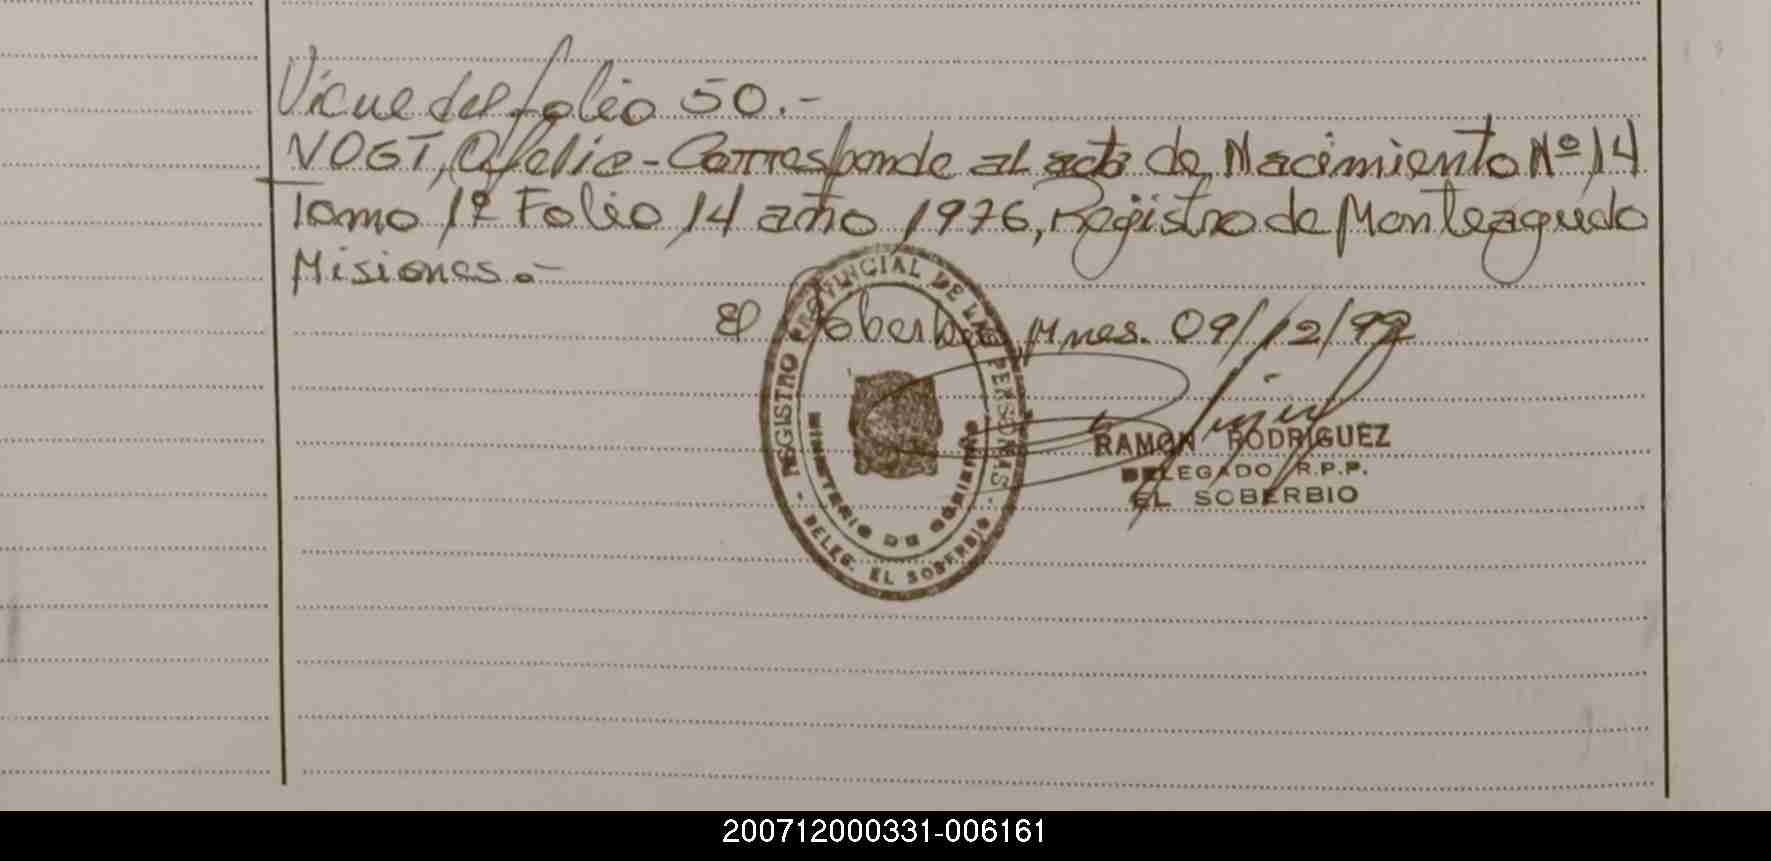 Vicue del folio 50.-
VOGT, Ofelia - Corresponde al acta de Nacimiento Nº 14
Tomo 1º Folio 14 año 1976, Registro de Monteagudo
Misiones.-
El Soberbio, Mnes. 09/12/92
REGISTRO PROVINCIAL DE LAS PERSONAS
MINISTERIO DE GOBIERNO
- DELEG. EL SOBERBIO -
RAMON RODRIGUEZ
DELEGADO R.P.P.
EL SOBERBIO
200712000331-006161